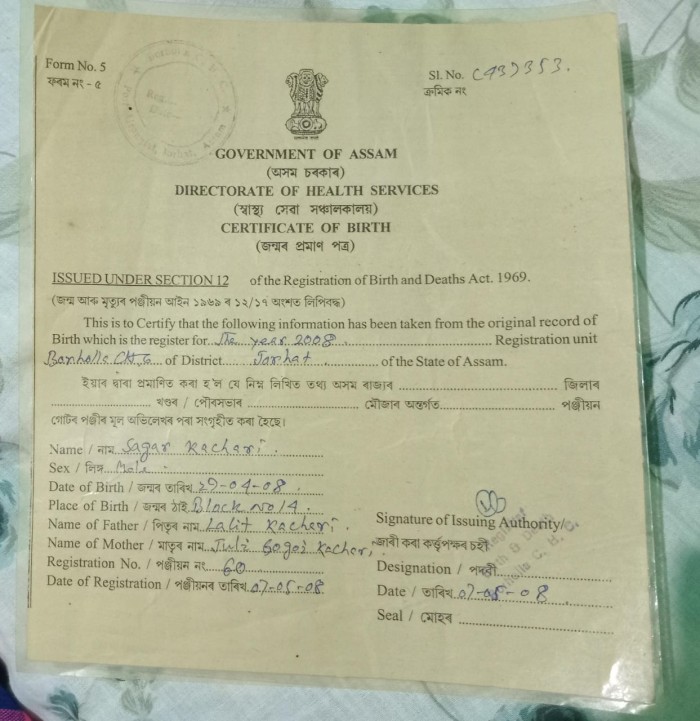 Form No. 5
ফৰম নং - ৫
Sl. No. C437353.
ক্ৰমিক নং
GOVERNMENT OF ASSAM
(অসম চৰকাৰ)
DIRECTORATE OF HEALTH SERVICES
(স্বাস্থ্য সেৱা সঞ্চালকালয়)
CERTIFICATE OF BIRTH
(জন্মৰ প্ৰমাণ পত্ৰ)
ISSUED UNDER SECTION 12 of the Registration of Birth and Deaths Act. 1969.
(জন্ম আৰু মৃত্যুৰ পঞ্জীয়ন আইন ১৯৬৯ ৰ ১২/১৭ অংশত লিপিবদ্ধ)
This is to Certify that the following information has been taken from the original record of
Birth which is the register for The year 2008 Registration unit
of District Jorhat of the State of Assam.
ইয়াৰ দ্বাৰা প্ৰমাণিত কৰা হ'ল যে নিম্ন লিখিত তথ্য অসম ৰাজ্যৰ জিলাৰ
খণ্ডৰ / পৌৰসভাৰ মৌজাৰ অন্তৰ্গত পঞ্জীয়ন
গোটৰ পঞ্জীৰ মূল অভিলেখৰ পৰা সংগৃহীত কৰা হৈছে।
Name / নাম Sagar Kachari.
Sex / লিঙ্গ Male
Date of Birth / জন্মৰ তাৰিখ 29-04-08.
Place of Birth / জন্মৰ ঠাই Block No 14.
Name of Father / পিতৃৰ নাম Lalit Kachari.
Name of Mother / মাতৃৰ নাম Juli Gogoi Kachari
Registration No. / পঞ্জীয়ন নং 60
Date of Registration / পঞ্জীয়নৰ তাৰিখ 07-05-08
Signature of Issuing Authority/
জাৰী কৰা কৰ্ত্তৃপক্ষৰ চহী
Designation / পদবী
Date / তাৰিখ 07-05-08
Seal / মোহৰ